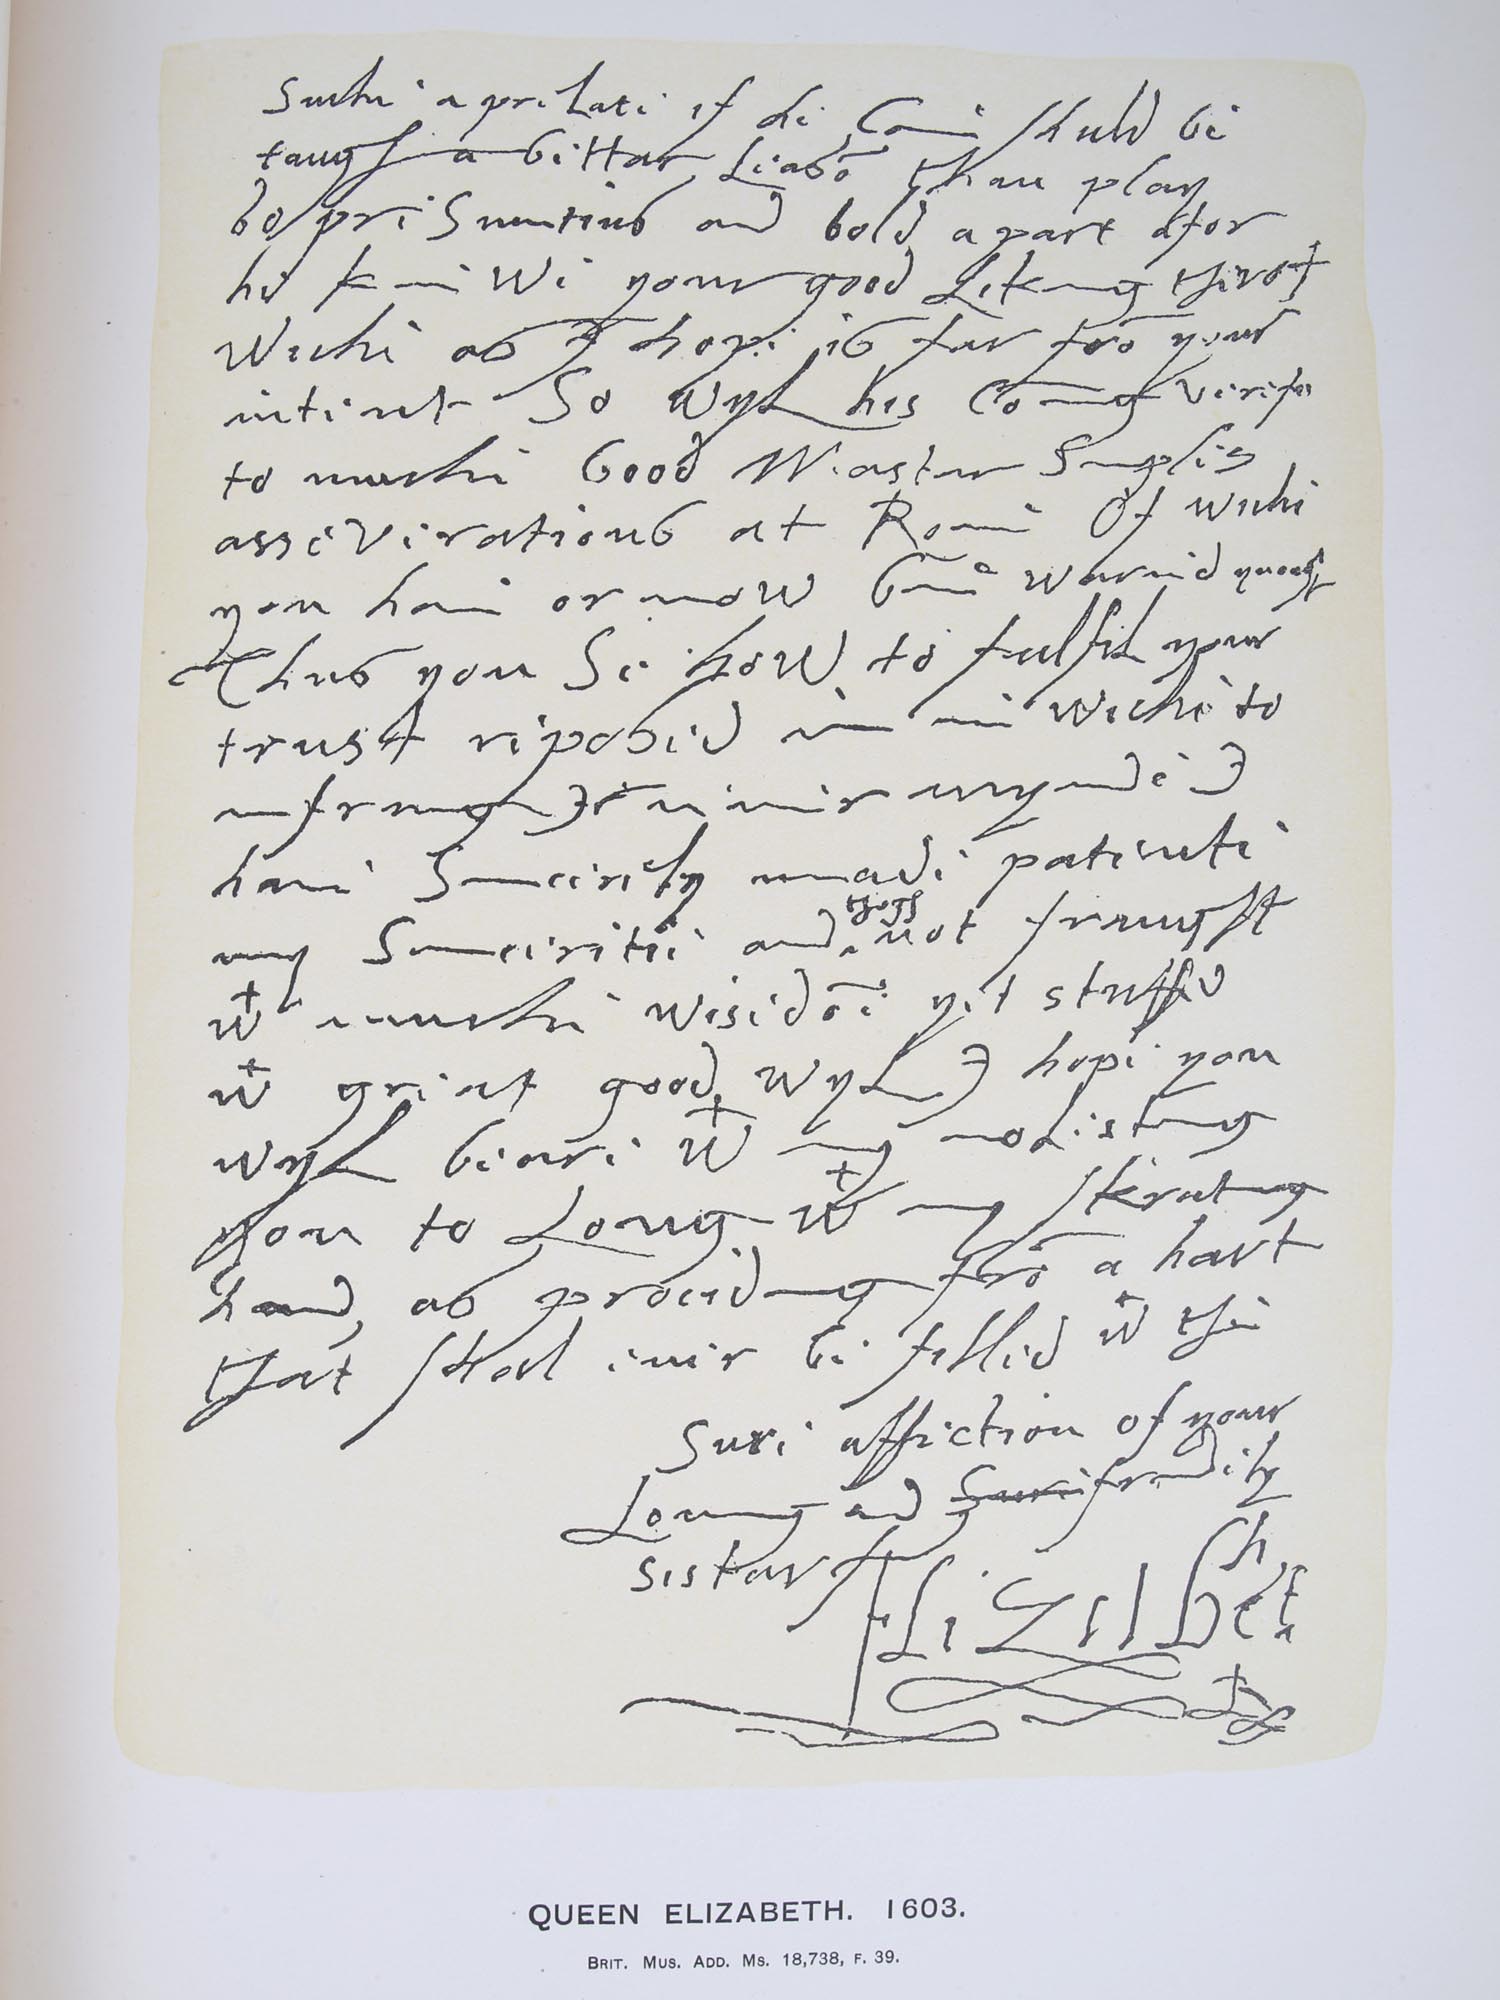 Suche a prelate if he come shuld be
taught a bettar leaso than play
so presumtius and bold a part afor
he knewe your good liking therof
Wiche as I hope is far fro your
intent So wyl his coming verefy
to muche Good Mastar Semples
asseverations at Rome Of wiche
you haue or now bine warned ynough
Thus you Se how to fulfil your
trust reposed in me wiche to
infringe I neuer mynde I
haue Sincerely made patente
my Sinceritie and thogh not fraught
wt muche wisedōe yet stuffed
wt great good wyl I hope you
wyl beare wt my molesting
you to Long wt my skrating
hand, as proceding frō a hart
that shal euer be filled wt the
Sure affection of your
Louing and frindely
sistar
Elizabeth R
QUEEN ELIZABETH. 1603.
BRIT. MUS. ADD. MS. 18,738, F. 39.